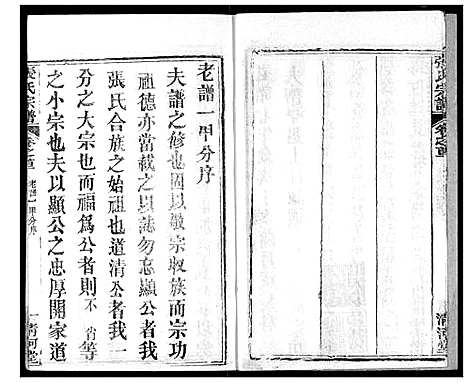 張氏宗譜
卷之首
清河堂
老譜一甲分序
夫譜之修也固以敬宗収族而宗功
祖德亦當載之以誌勿忘顯公者我
張氏合族之始祖也道清公者我一
分之大宗也而福爲公者則不肖等
之小宗也夫以顯公之忠厚開家道
張氏宗譜
卷之首
老譜一甲分序
一
清河堂